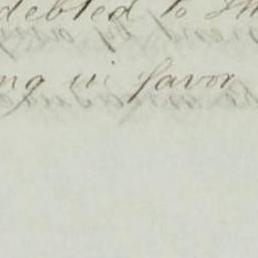 debted to
ng in favor